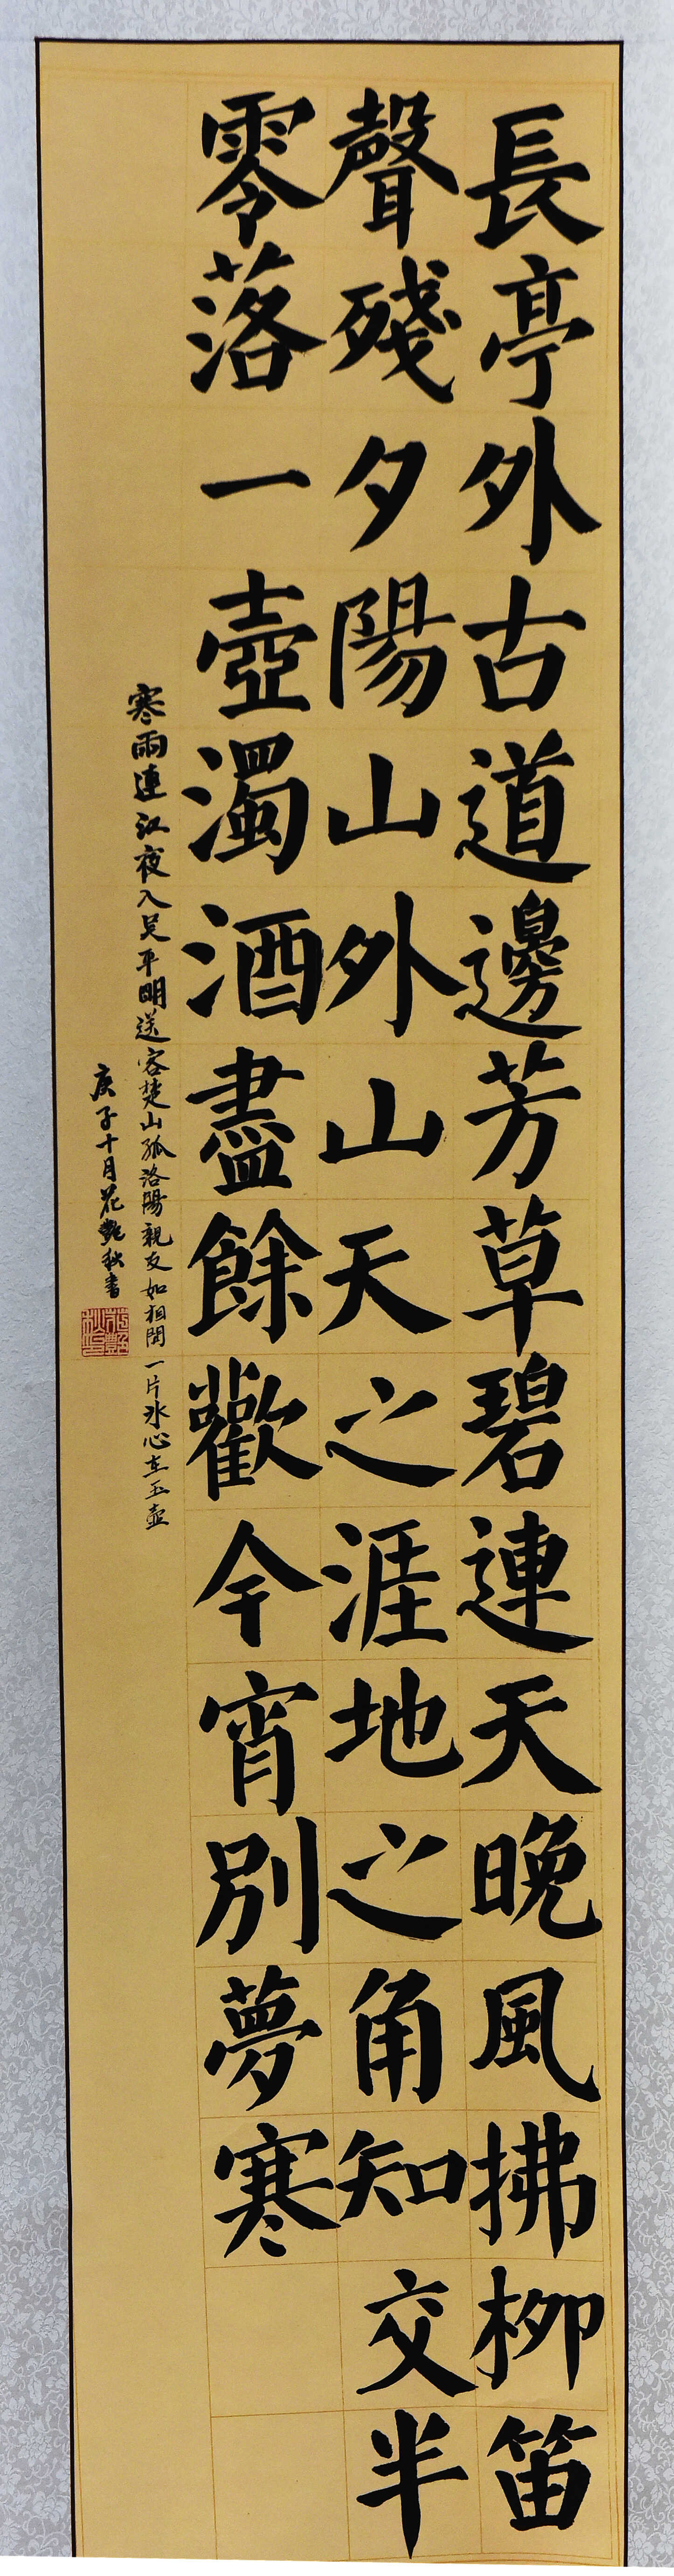 長亭外古道邊芳草碧連天晚風拂柳笛
聲殘夕陽山外山天之涯地之角知交半
零落一壺濁酒盡餘歡今宵別夢寒
寒雨連江夜入吴平明送客楚山孤洛陽親友如相問一片冰心在玉壺
庚子十月花艷秋書